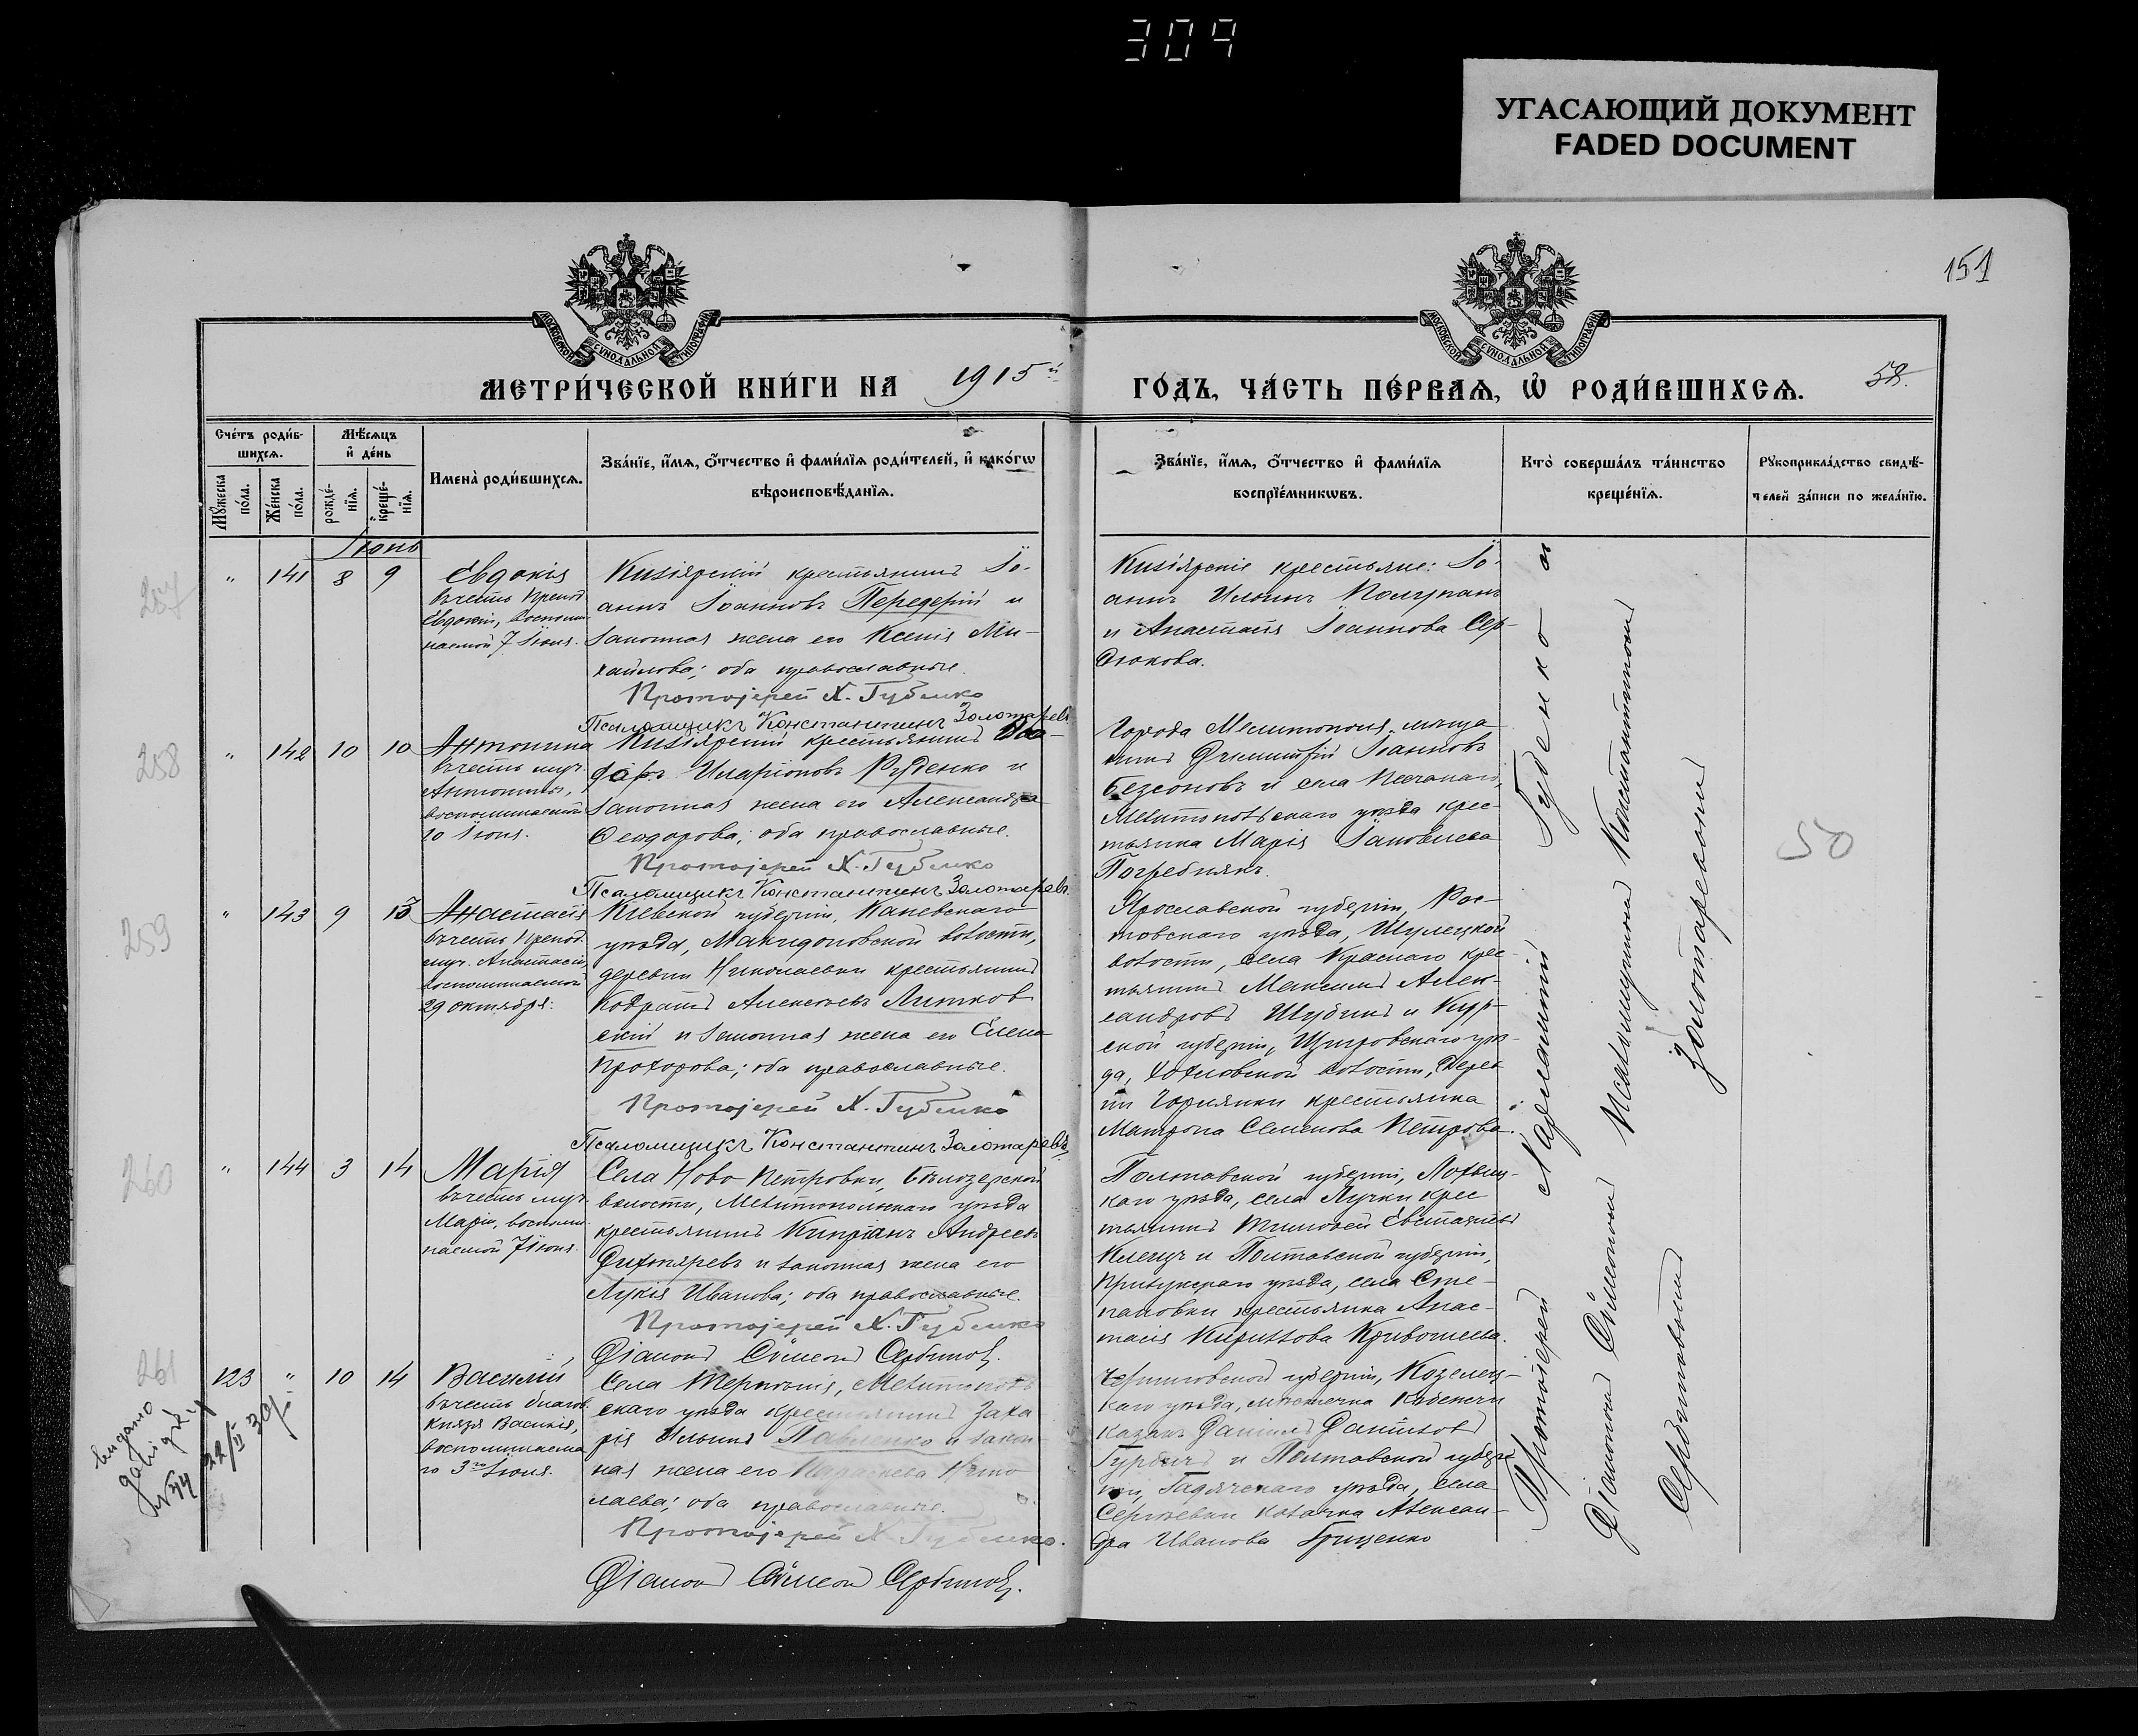 309
УГАСАЮЩИЙ ДОКУМЕНТ
FADED DOCUMENT
151
МОСКОВСКОЙ СУНОДАЛЬНОЙ ТИПОГРАФІИ
МОСКОВСКОЙ СУНОДАЛЬНОЙ ТИПОГРАФІИ
МЕТРИ́ЧЕСКОЙ КНИ́ГИ НА 1915й ГО́ДЪ, ЧА́СТЬ ПЕ́РВАѦ, Ѽ РОДИ́ВШИХСѦ.
Сче́тъ роди́в-
шихсѧ.
Мѣ́сѧцъ
и҆ де́нь
Мꙋ́жеска по́ла.
Же́нска по́ла.
рожде́-
нїѧ.
креще́-
нїѧ.
Имена̀ роди́вшихсѧ.
Зва́нїе, и҆́мѧ, ѻ҆́тчество и҆ фами́лїѧ роди́телей, и҆ како́гѡ
вѣроисповѣ́данїѧ.
Зва́нїе, и҆́мѧ, ѻ҆́тчество и҆ фами́лїѧ
воспрїе́мникѡвъ.
Кто̀ соверша́лъ та́инство
креще́нїѧ.
Рꙋкоприкла́дство свидѣ́-
телей за́писи по жела́нїю.
Іюнь
257
" 141 8 9
Евдокія
въ честь Препод.
Евдокіи, воспоми-
наемой 7 Іюня.
Кизіярскій крестьянинъ Іо-
аннъ Іоанновъ Передерій и
законная жена его Ксенія Ми-
хайлова; оба православные.
Протоіерей Х. Губенко
Псаломщикъ Константинъ Золотаревъ
Кизіярскіе крестьяне: Іо-
аннъ Ильинъ Полупанъ
и Анастасія Іоаннова Сер-
дюкова.
258
" 142 10 10
Антонина
въ честь муч.
Антонины,
воспоминаемой
10 Іюня.
Кизіярскій крестьянинъ
Иларіоновъ Руденко и
законная жена его Александра
Ѳеодорова; оба православные.
Протоіерей Х. Губенко
Псаломщикъ Константинъ Золотаревъ
Города Мелитополя мѣща-
нинъ Димитрій Іоанновъ
Безсоновъ и села Песчанаго,
Мелитопольскаго уѣзда крес-
тьянка Марія Іаковлева
Погребнякъ.
259
" 143 9 13
Анастасія
въ честь Препод.
муч. Анастасіи,
воспоминаемой
29 октября.
Кіевской губерніи, Каневскаго
уѣзда, Македоновской волости,
деревни Николаевки крестьянинъ
Кодратъ Алексѣевъ Литков-
скій и законная жена его Елена
Прохорова; оба православные.
Протоіерей Х. Губенко
Псаломщикъ Константинъ Золотаревъ
Ярославской губерніи, Рос-
товскаго уѣзда, Шулецкой
волости, села Краснаго крес-
тьянинъ Максимъ Алек-
сандровъ Шубинъ и Кур-
ской губерніи, Щигровскаго уѣз-
да, Хохловской волости, дерев-
ни Горянки крестьянка
Матрона Семенова Петрова.
260
" 144 3 14
Марія
въ честь муч.
Маріи, воспоми-
наемой 7 Іюня.
Села Ново-Петровки, Бѣлозерской
волости, Мелитопольскаго уѣзда
крестьянинъ Кипріанъ Андреевъ
Дихтяревъ и законная жена его
Лукія Иванова; оба православные.
Протоіерей Х. Губенко
Діаконъ Сѵмеонъ Сербиновъ.
Полтавской губерніи, Лохвиц-
каго уѣзда, села Лучки крес-
тьянинъ Тимоѳей Евстаѳіевъ
Клецъ и Полтавской губерніи,
Прилукскаго уѣзда, села Сте-
пановки крестьянка Анас-
тасія Кириллова Кривошеева.
261
123 " 10 14
Василій
въ честь благов.
князя Василія,
воспоминаема-
го 3го Іюня.
Села Терпѣнія, Мелитополь-
скаго уѣзда крестьянинъ Заха-
рія Ильинъ Павленко и закон-
ная жена его Параскева Нико-
лаева; оба православные.
Протоіерей Х. Губенко.
Діаконъ Сѵмеонъ Сербиновъ.
Черниговской губерніи, Козелец-
каго уѣзда, мѣстечка Кобыжчи
казакъ Даніилъ Даніиловъ
Гурбичъ и Полтавской губер-
ніи, Гадячскаго уѣзда, села
Сергіевки казачка Алексан-
дра Иванова Грищенко
Протоіерей Харлампій Губенко съ
Діакономъ Сѵмеономъ Псаломщикомъ Константиномъ
Сербиновымъ Золотаревымъ
50
видано
22/II 30